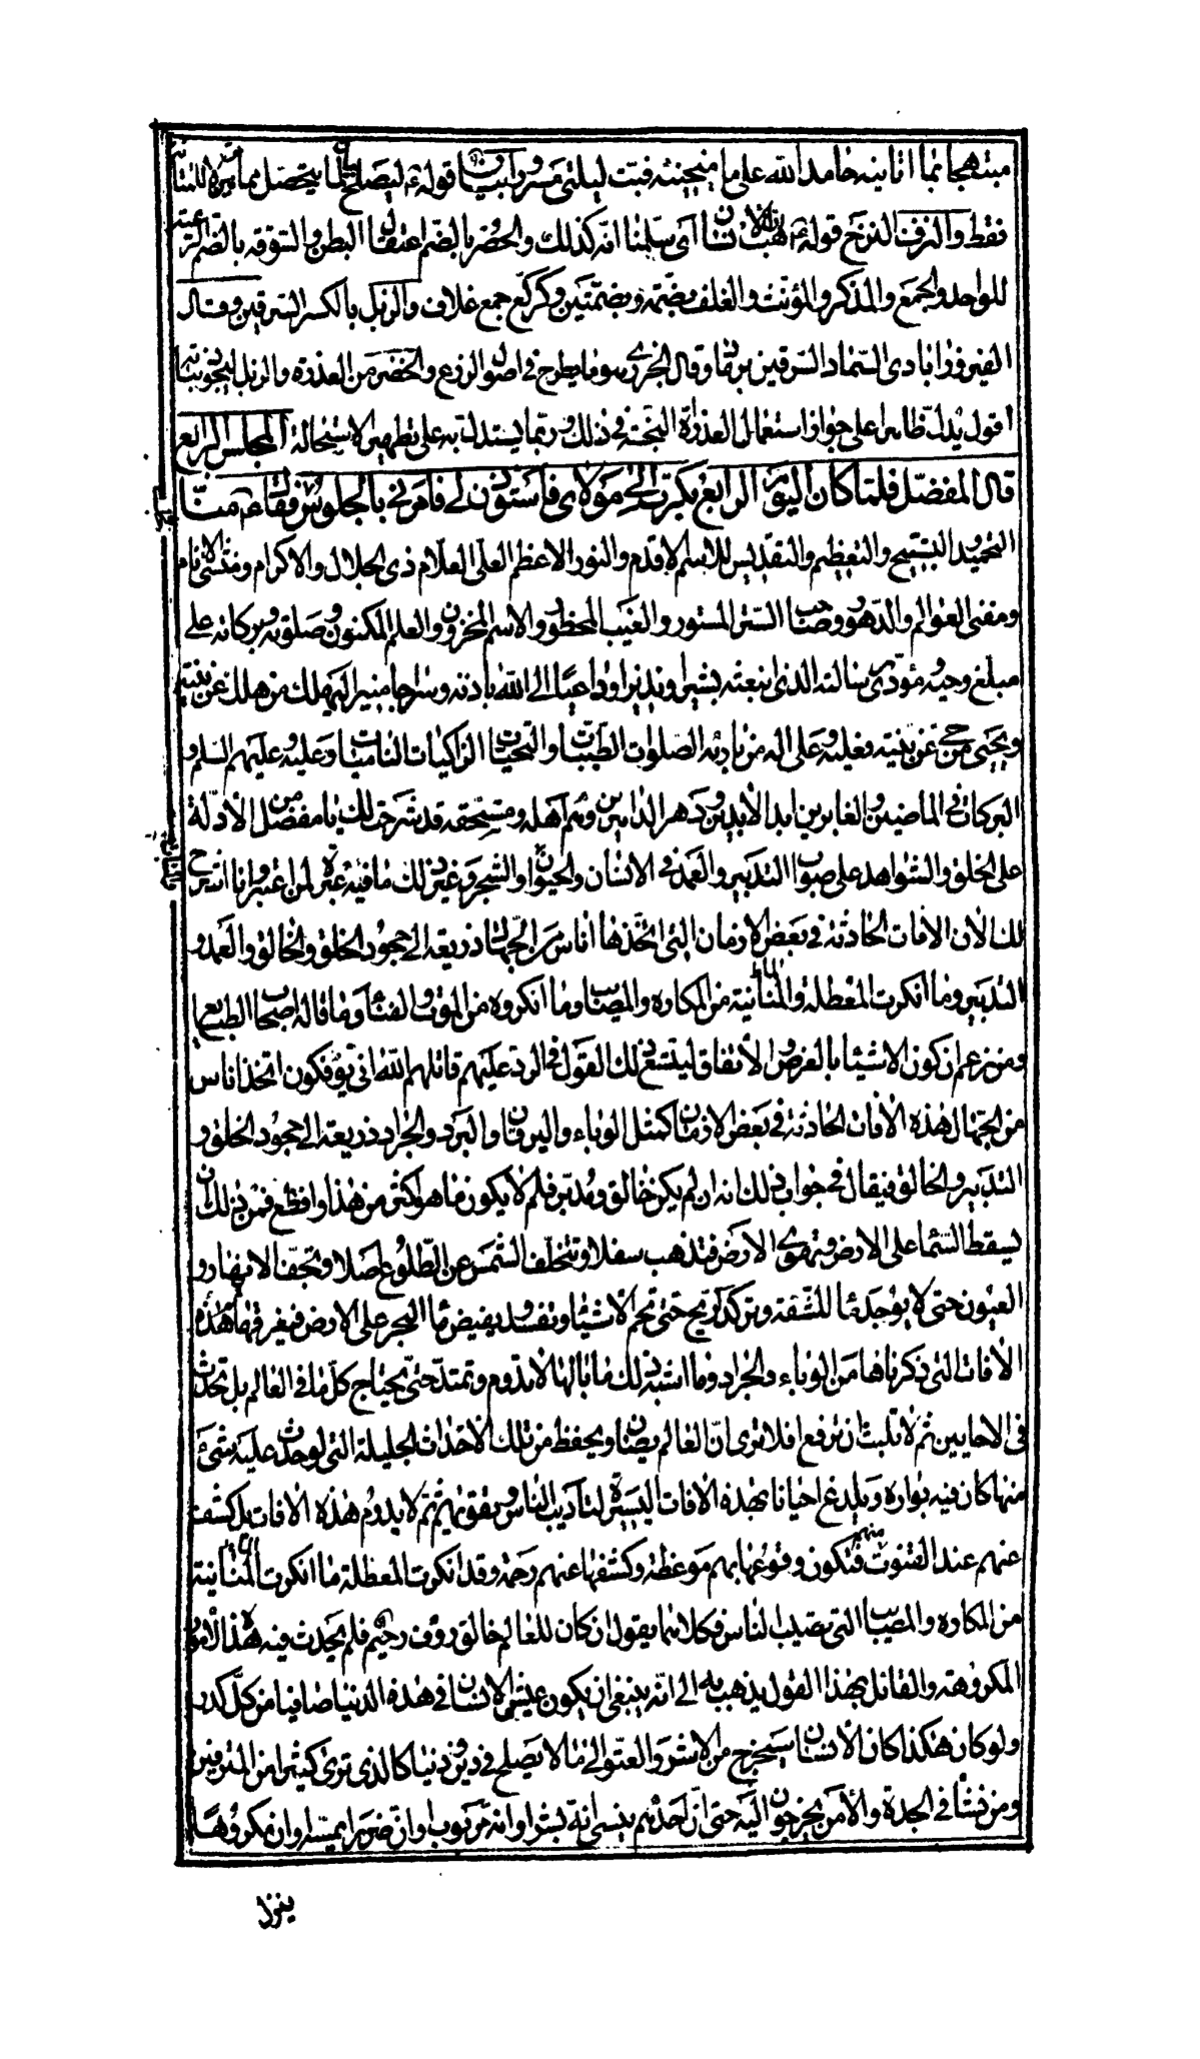 مبتهجا بما اتانيه حامدا لله على ما منحنيه فبت ليلتي مسرورا بيان قوله ع ليصلح بيان لما يتحصل مما
فقط والترف التنزع قوله ع هب الانسان اى سلمنا انه كذلك والحصر بالضم اعتقال البطن والسوقه بالضم الرعية
للواحد والجمع والمذكر والمؤنث والغلف بضمة وبضمتين وكركع جمع غلاف والزبل بالكسر السرقين وقال
الفيروزآبادى السماد السرقين برماد وقال الجزرى هو ما يطرح في اصول الزرع والخضر من العذرة والزبل ليجود نباته
اقول يدل ظاهرا على جواز استعمال العذرات النجسة في ذلك وربما يستدل به على تطهير الاستحالة المجلس الرابع
قال المفضل فلما كان اليوم الرابع بكرت الى مولاى فاستوذن لى فامرنى بالجلوس فجلست فقال ع منا
التحميد والتسبيح والتعظيم والتقديس للاسم الاقدم والنور الاعظم العلى العلام ذى الجلال والاكرام ومنشئ الانام
ومفنى العوالم والدهور وصاحب السر المستور والغيب المحظور والاسم المخزون والعلم المكنون وصلوته وبركاته على
مبلغ وحيه ومؤدى رسالته الذى ابتعثه بشيرا ونذيرا وداعيا الى الله باذنه وسراجا منيرا ليهلك من هلك عن بينة
ويحيى من حى عن بينة فعليه وعلى اله من بارئه الصلوات الطيبات والتحيات الزاكيات الناميات وعليه وعليهم السلم و
البركات في الماضين والغابرين ابد الابدين ودهر الداهرين وهم اهله ومستحقه قد شرحت لك يا مفضل من الادلة
على الخلق والشواهد على صواب التدبير والعمد في الانسان والحيوان والنبات والشجر وغير ذلك ما فيه عبرة لمن اعتبر وانا اشرح
لك الان الافات الحادثة في بعض الازمان التى اتخذها اناس من الجهال ذريعة الى جحود الخلق والخالق والعمد و
التدبير وما انكرت المعطلة والمنانية من المكاره والمصائب وما انكروه من الموت والفناء وما قاله اصحاب الطبايع
ومن زعم ان كون الاشياء بالعرض والاتفاق ليتسع ذلك القول في الرد عليهم قاتلهم الله انى يؤفكون اتخذ اناس
من الجهال هذه الافات الحادثة في بعض الازمان كمثل الوباء واليرقان والبرد والجراد ذريعة الى جحود الخلق و
التدبير والخالق فيقال في جواب ذلك انه ان لم يكن خالق ومدبر فلم لا يكون ما هو اكثر من هذا وافظع فمن ذلك ان
يسقط السماء على الارض وتهوى الارض فتذهب سفلا وتتخلف الشمس عن الطلوع اصلا وتجف الانهار و
العيون حتى لا يوجد ماء للشفة وتركد الريح حتى تخم الاشياء وتفسد ويفيض ماء البحر على الارض فيغرقها ثم هذه
الافات التى ذكرناها من الوباء والجراد وما اشبه ذلك ما بالها لا تدوم وتمتد حتى يجتاح كل ما في العالم بل تحدث
في الاحايين ثم لا تلبث ان ترفع افلا ترى ان العالم يصان ويحفظ من تلك الاحداث الجليلة التى لو حدث عليه شئ
منها كان فيه بواره ويلدغ احيانا بهذه الافات اليسيرة لتاديب الناس وتقويمهم ثم لا يدوم هذه الافات بل تكشف
عنهم عند القنوت منهم فتكون وقوعها بهم موعظة وكشفها عنهم رحمة وقد انكرت المعطلة ما انكرت المنانية
من المكاره والمصائب التى تصيب الناس فكلاهما يقول ان كان للعالم خالق رؤف رحيم فلم يحدث فيه هذه الامور
المكروهة والقائل بهذا القول يذهب به الى انه ينبغى ان يكون عيش الانسان في هذه الدنيا صافيا من كل كدر
ولو كان هكذا كان الانسان سيخرج من الاشر والعتو الى ما لا يصلح في دين ودنيا كالذى ترى كثيرا من المترفين
ومن نشأ في الجدة والامن يخرجون اليه حتى ان احدهم ينسى انه بشر او انه مربوب وان ضررا يمسه او ان مكروها
ينزل